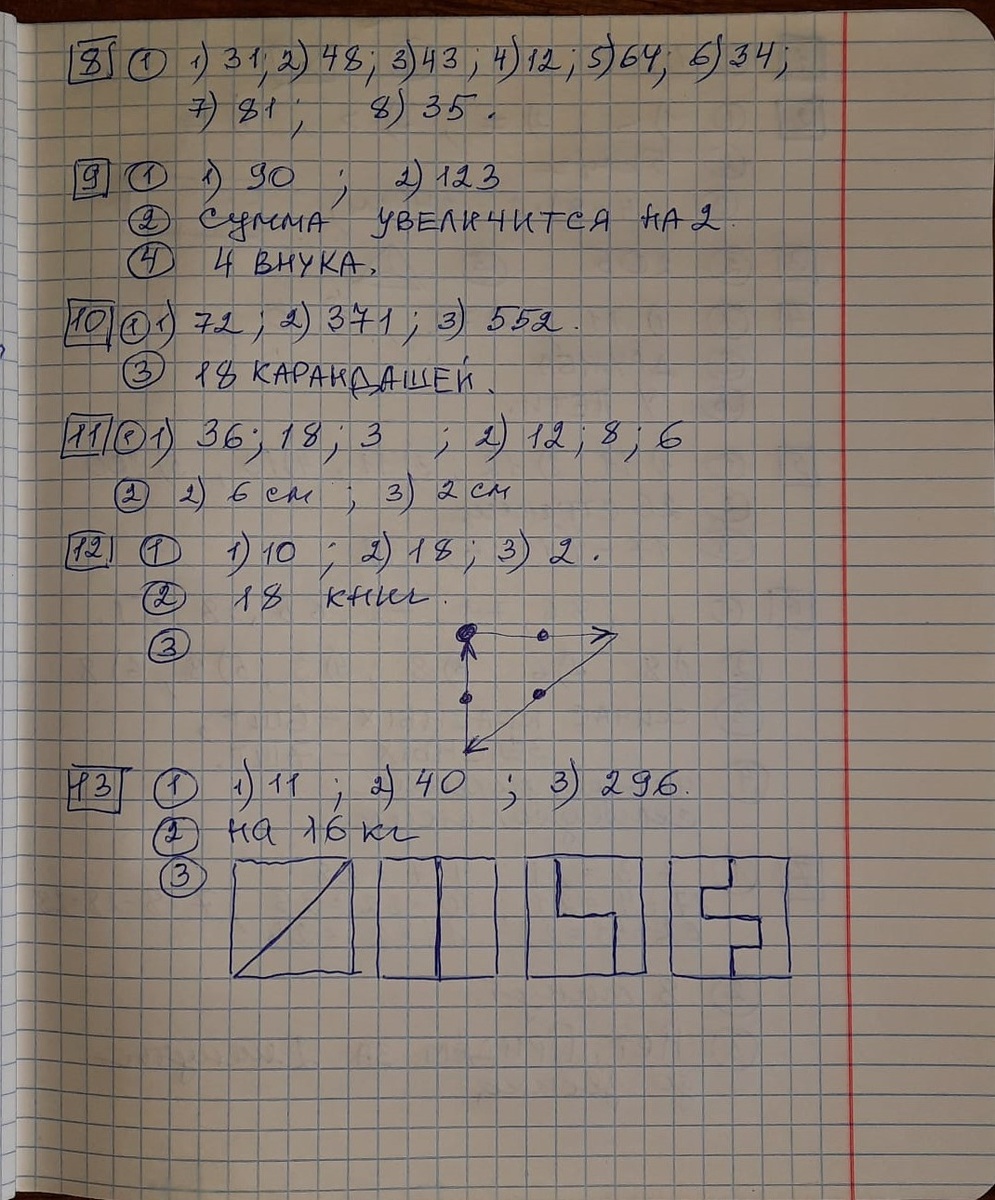 8 1 1) 31; 2) 48; 3) 43; 4) 12; 5) 64; 6) 34;
7) 81; 8) 35.
9 1 1) 90; 2) 123
2 СУММА УВЕЛИЧИТСЯ НА 2.
4 4 ВНУКА.
10 1 1) 72; 2) 371; 3) 552.
3 18 КАРАНДАШЕЙ.
11 1 1) 36; 18; 3; 2) 12; 8; 6
2 2) 6 см; 3) 2 см
12 1 1) 10; 2) 18; 3) 2.
2 18 книг.
3
13 1 1) 11; 2) 40; 3) 296.
2 на 16 кг
3